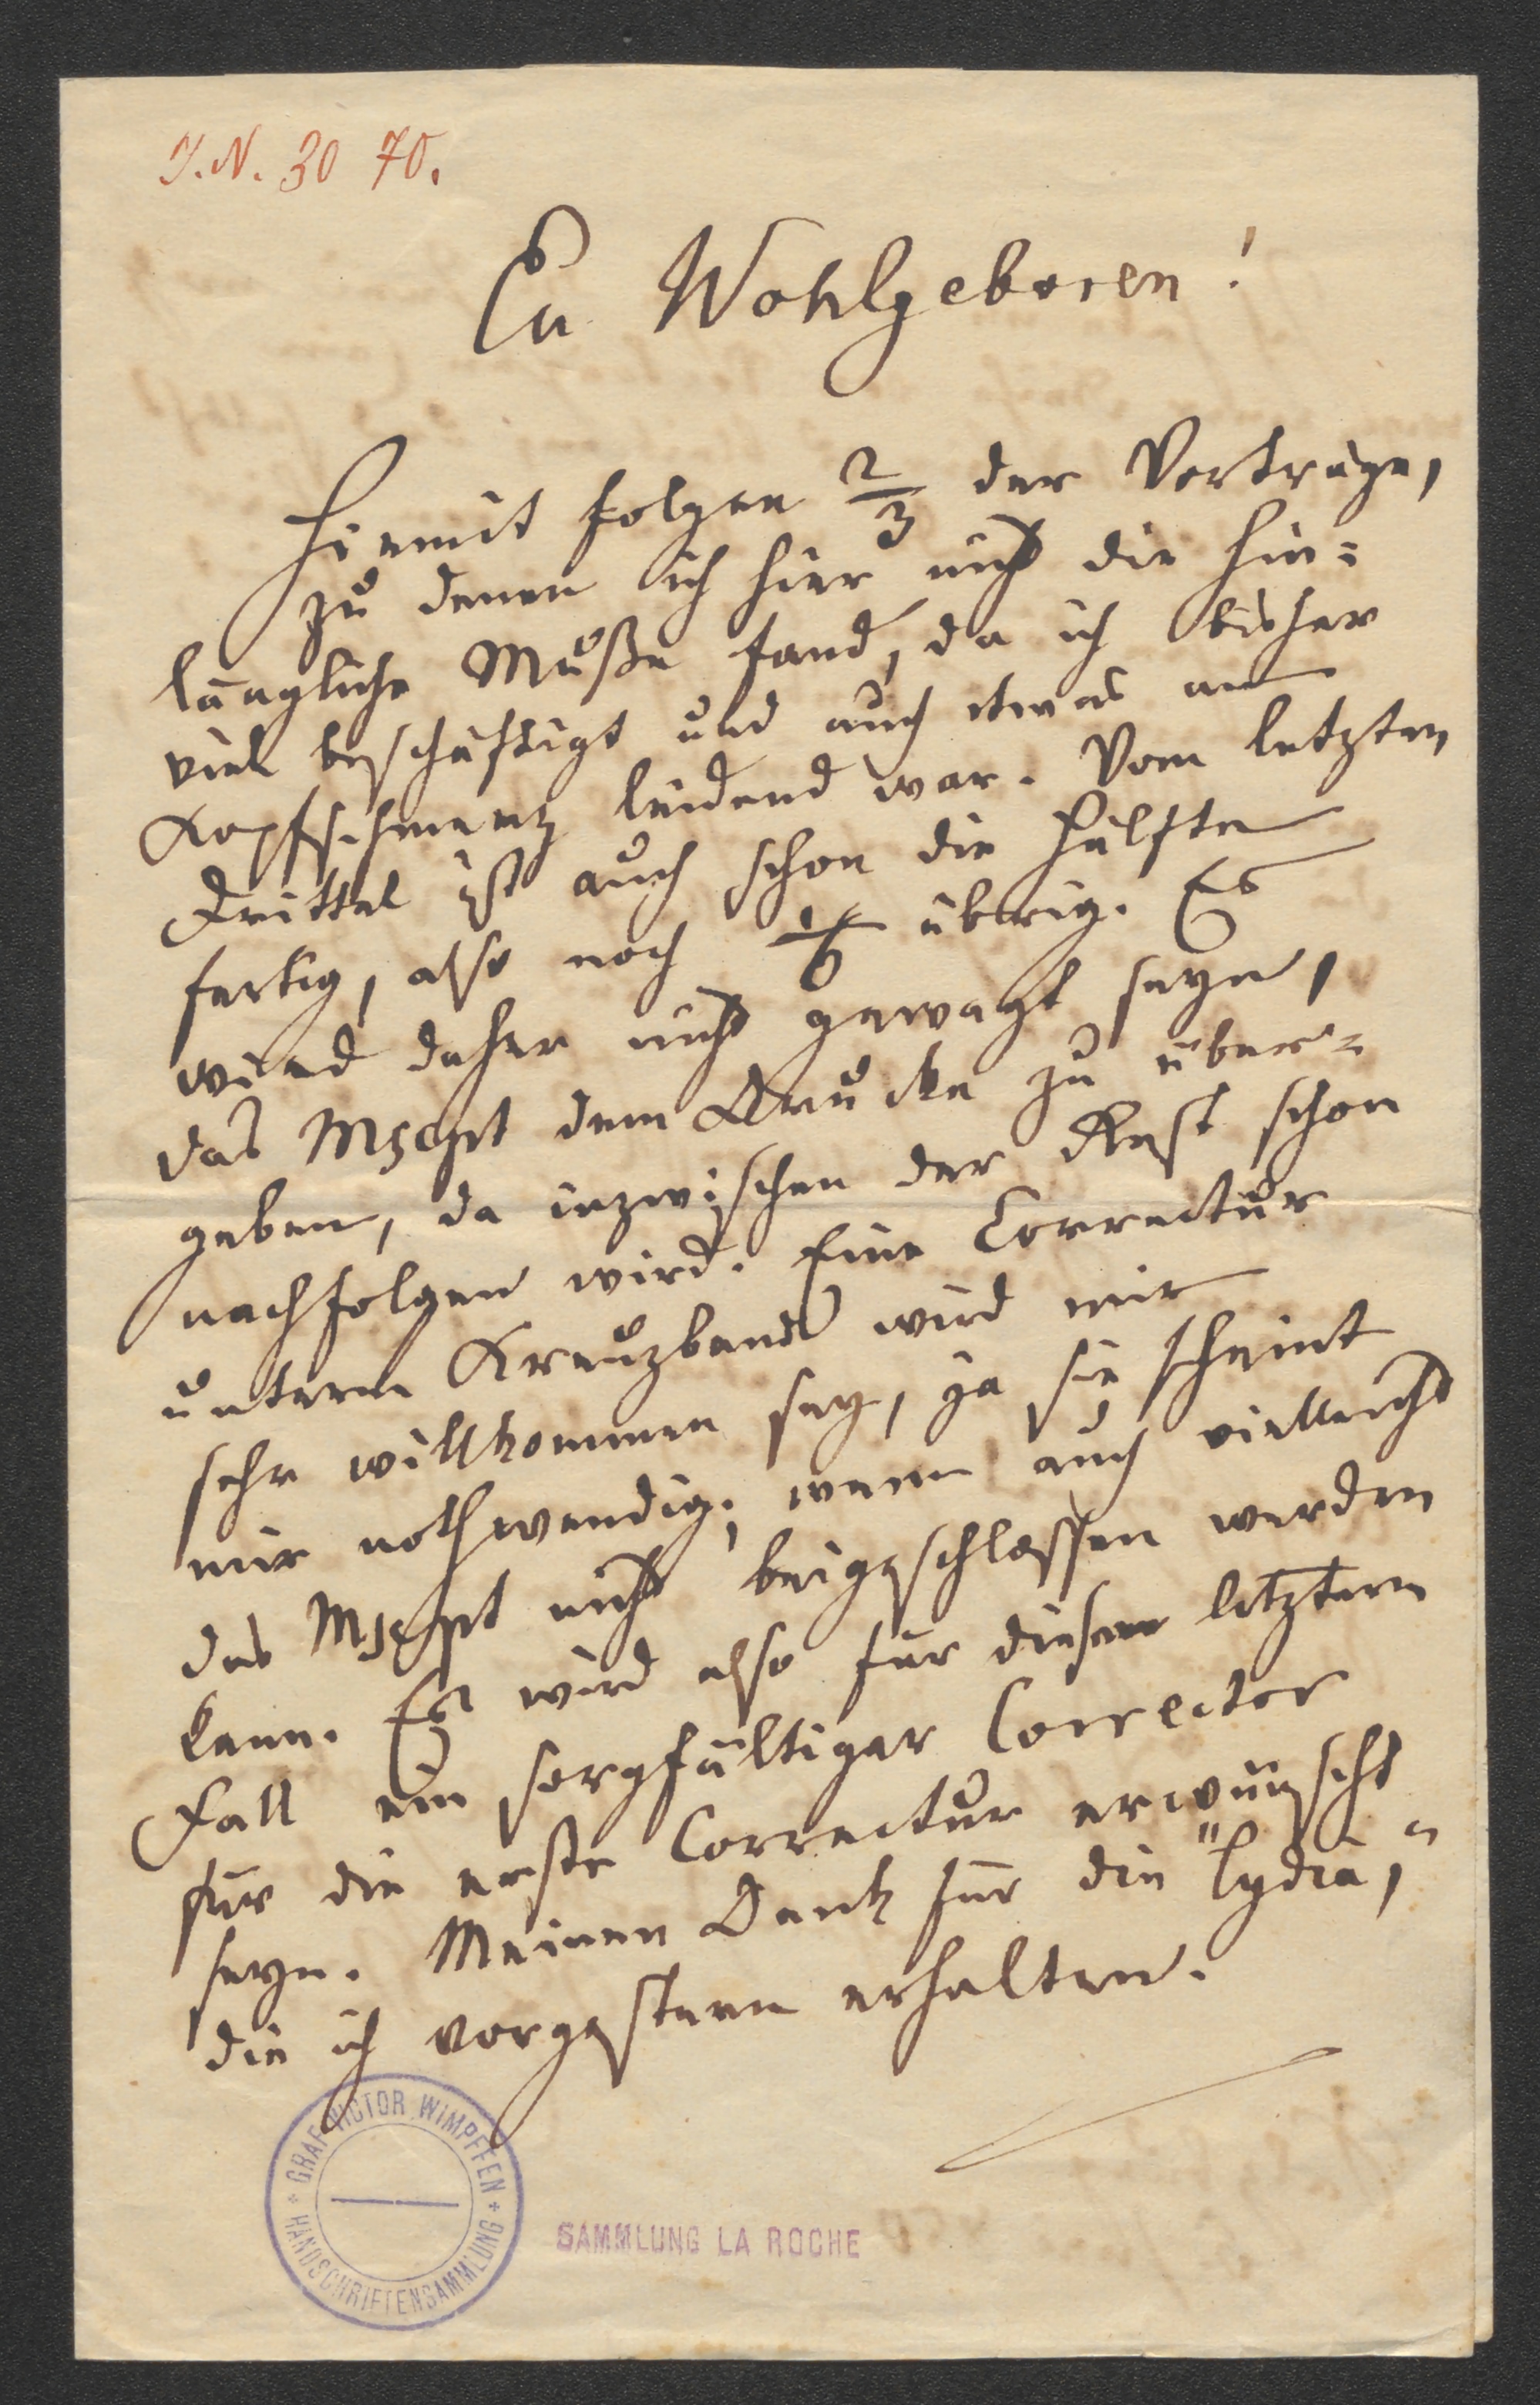 I. N. 3070.
Eu Wohlgeboren!
Hiemit folgen 2/3 der Vorträge,
zu denen ich hier nicht die hin=
längliche Muße fand, da ich bisher
viel beschäftigt und auch etwas am
Kopfschmerz leidend war. Vom letzten
Drittel ist auch schon die Hälfte
fertig, also noch 1/6 übrig. Es
wird daher nicht gewagt seyn,
das Mscpt dem Drucke zu über=
geben, da inzwischen der Rest schon
nachfolgen wird. Eine Correctur
unterm Kreuzband wird mir
sehr willkommen sey, ja sie scheint
mir nothwendig, wenn auch vielleicht
das Mscpt nicht beigeschlossen werden
kann. Es wird also für diesen letztern
Fall ein sorgfältiger Corrector
für die erste Correctur erwünscht
seyn. Meinen Dank für die "Lydia,"
die ich vorgestern erhalten.
GRAF VICTOR WIMPFFEN
HANDSCHRIFTENSAMMLUNG
SAMMLUNG LA ROCHE